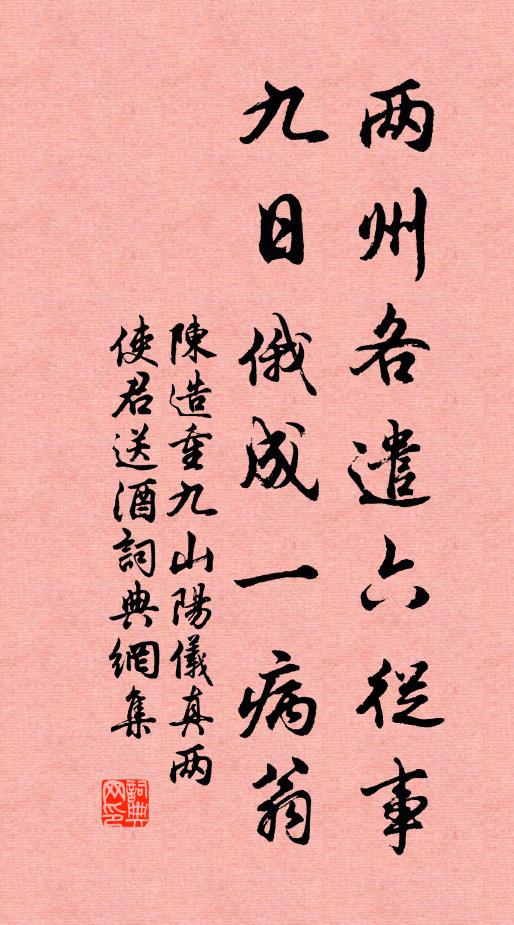 两州各遣六従事
九日俄成一病翁
陳造重九山陽儀真两
使君送酒詞典網集
詞典網印